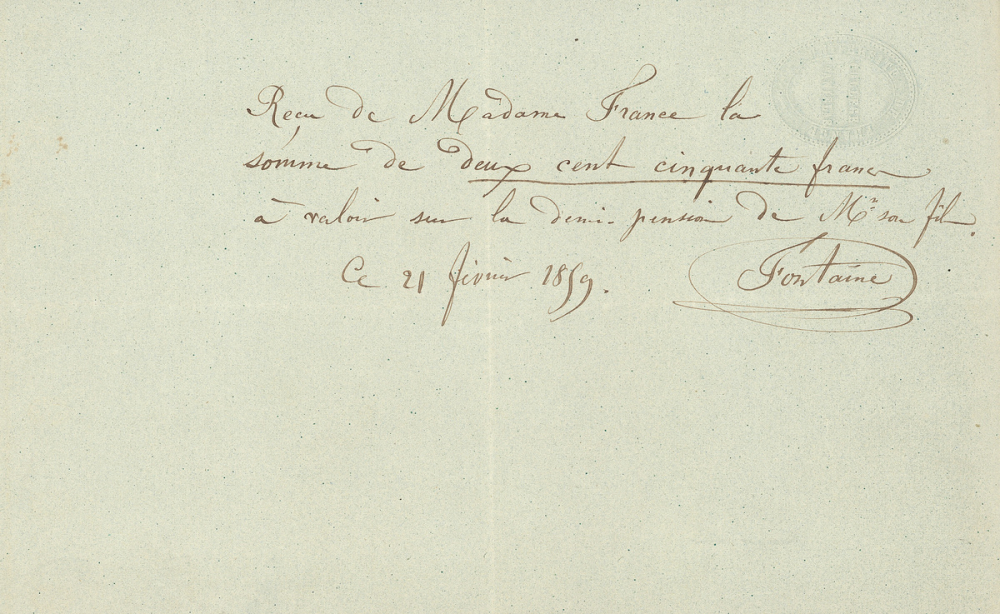 Reçu de Madame France la
somme de deux cent cinquante francs
à valoir sur la demi-pension de Mr son fils.
Ce 21 février 1859.
Fontaine